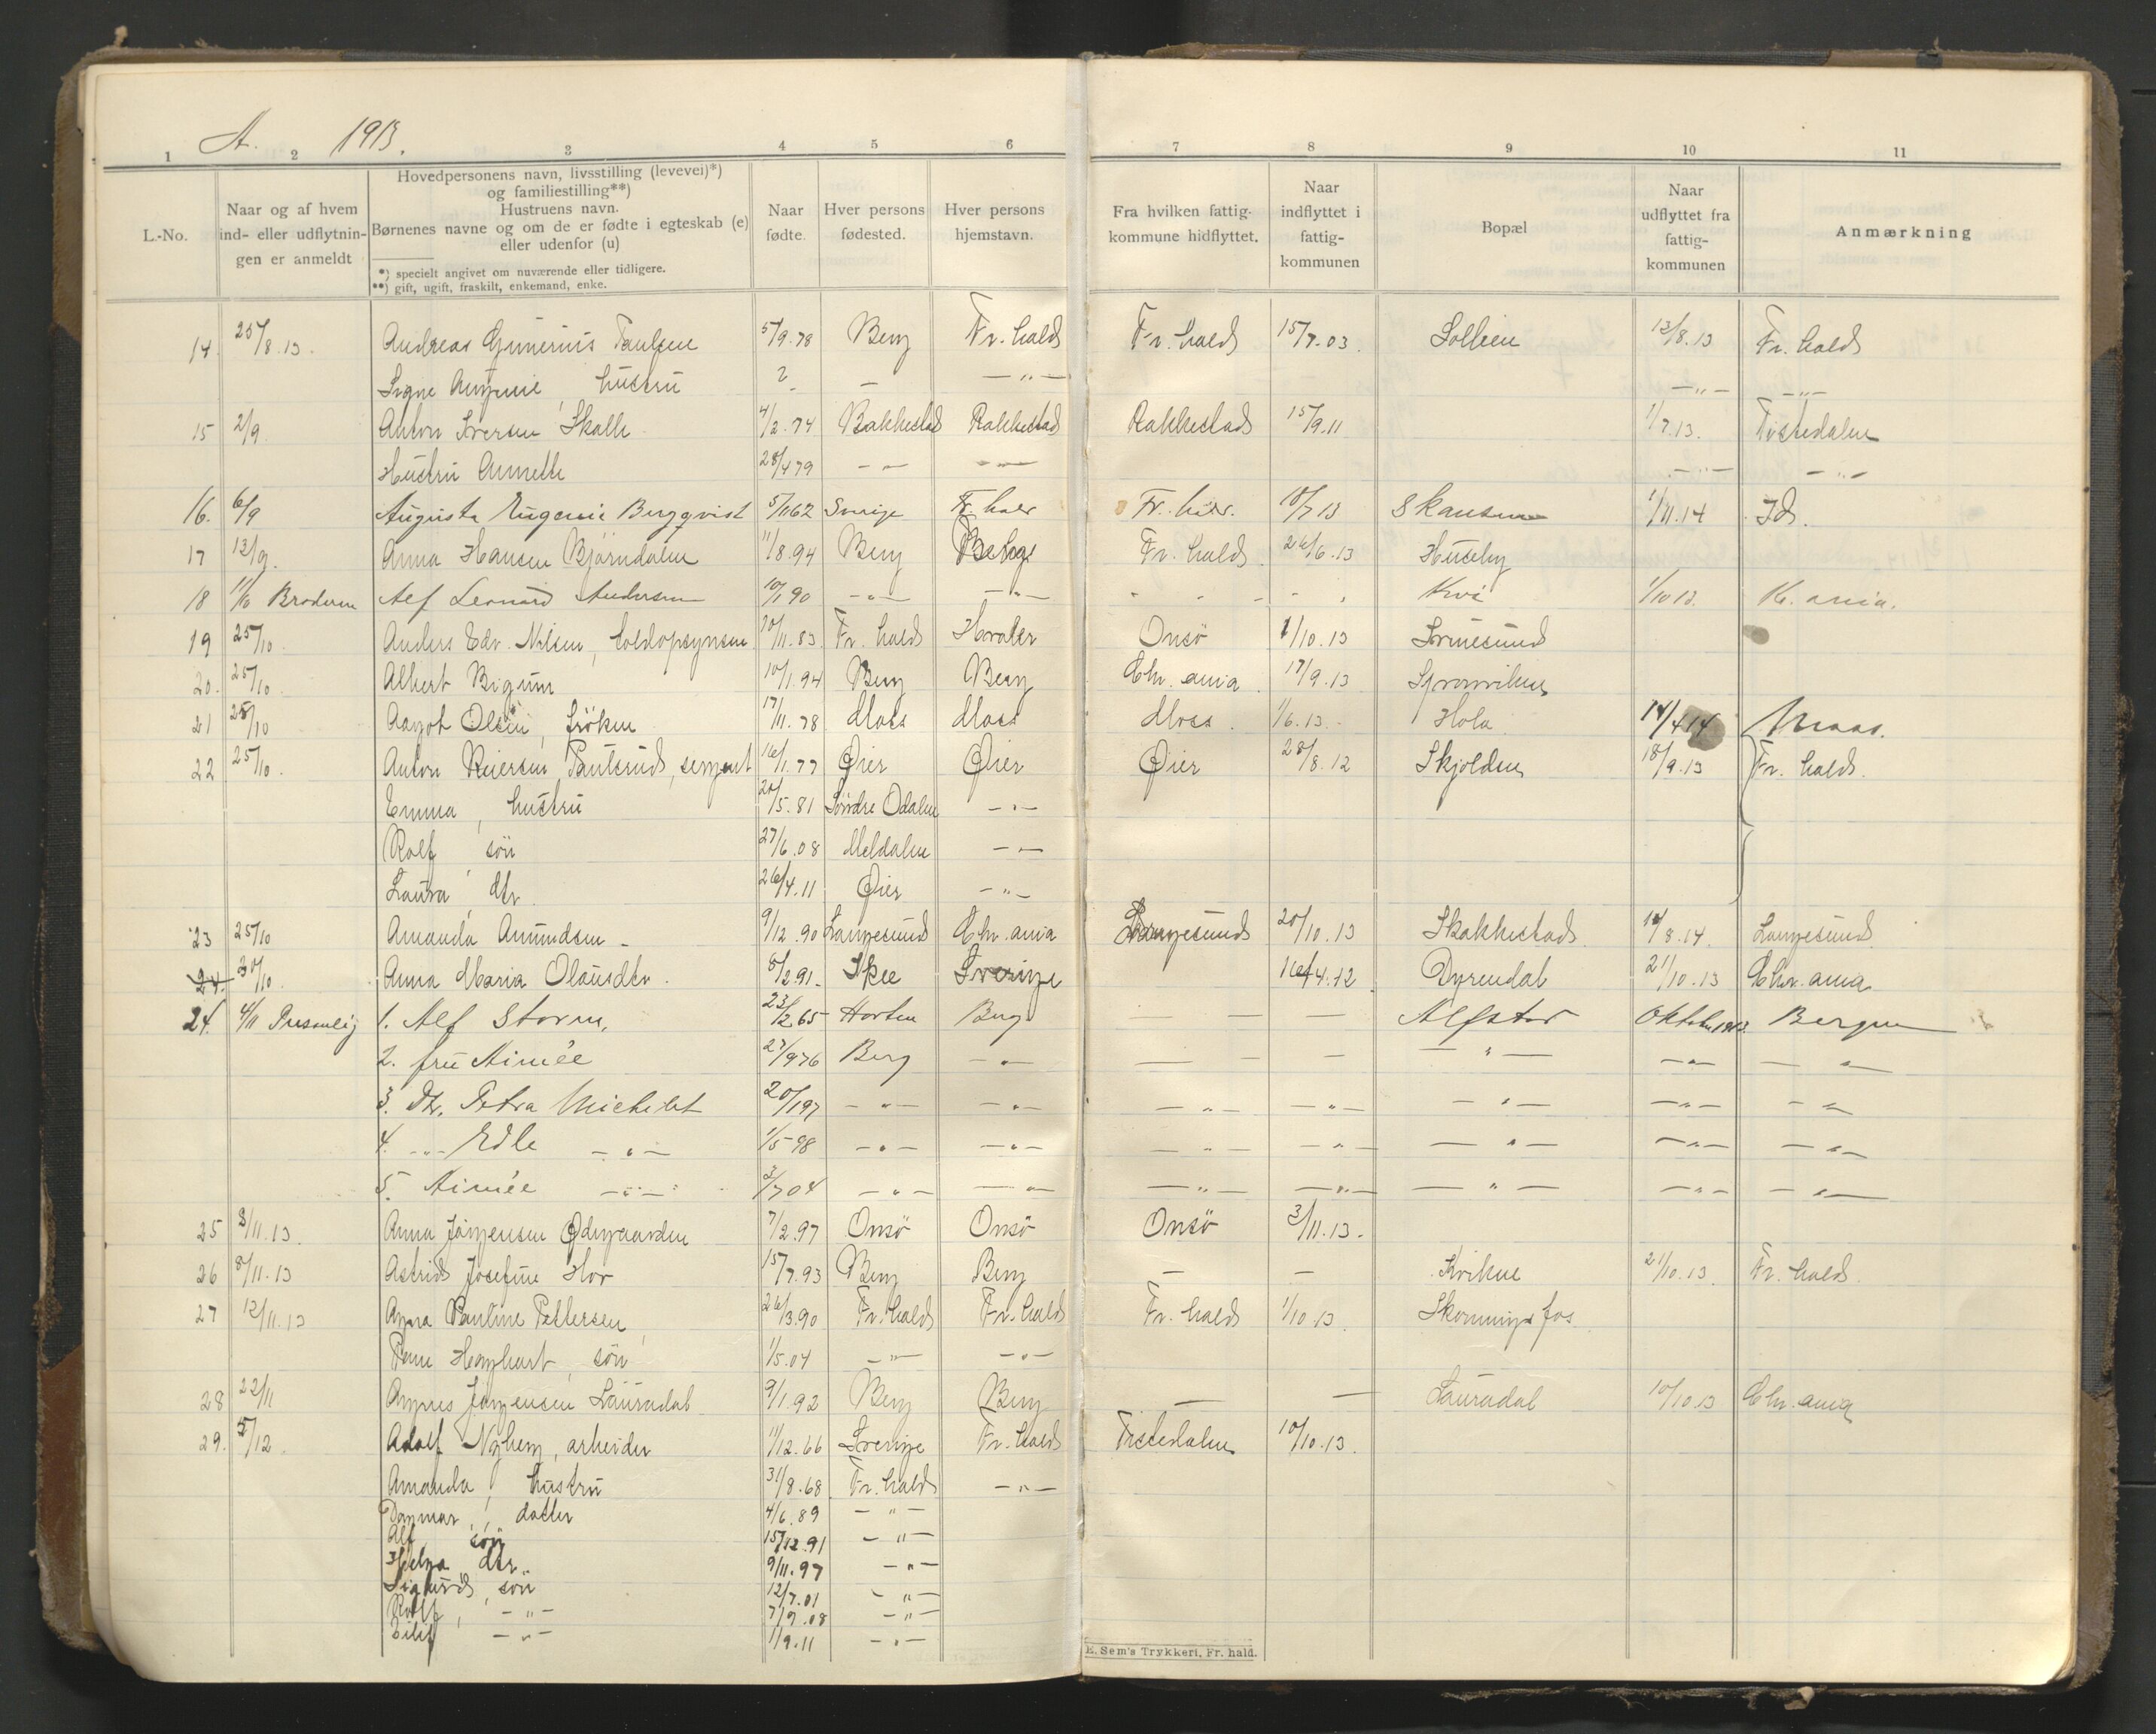 A. 1913.
1 2 3 4 5 6 7 8 9 10 11
L.-No.
Naar og af hvem ind- eller udflytningen er anmeldt
Hovedpersonens navn, livsstilling (levevei)*)
og familiestilling**)
Hustruens navn.
Børnenes navne og om de er fødte i egteskab (e)
eller udenfor (u)
*) specielt angivet om nuværende eller tidligere.
**) gift, ugift, fraskilt, enkemand, enke.
Naar fødte.
Hver persons fødested.
Hver persons hjemstavn.
Fra hvilken fattigkommune hidflyttet.
Naar indflyttet i fattigkommunen
Bopæl
Naar udflyttet fra fattigkommunen
Anmærkning
14. 25/8.13. Andreas Gunerius Paulsen 5/9.78 Berg Fr.hald Fr.hald 15/7.03. 13/8.13 Fr.hald
Signe hustru ? — —„— —„— —„—
15 2/9. Anton Iversen Skolle 4/2.74 Rakkestad Rakkestad Rakkestad 15/9.11 1/7.13. Tistedalen
Hustru Annette 28/4 79 —„— —„— —„— —„—
16. 6/9 Augusta Eugenie Bergqvist 5/11 62 Sverige Fr.hald Fr.hald. 10/7 13 Skansen 1/11.14 Id.
17 13/9. Anna Hansen Björndalen 11/8.94 Berg Berg Fr.hald. 26/6.13 Huseby
18 11/10 Broderen Alf Leonard Andersen 10/1 90 —„— —„— - - - - Kvi 1/10 13. Kr.ania.
19 25/10. Anders Edv. Nilsen, toldopsynsm 20/11.83. Fr.hald Hvaler Onsö 1/10.13 Svinesund
20. 25/10. Albert Bigum 10/1.94 Berg Berg Chr.ania. 17/9.13 Sponviken
21 25/10 Aagot Olsen, fröken 17/11.78 Moss Moss Moss. 1/6.13. Hola 14/4 14 Moss.
22 25/10. Anton Reiersen Paulsrud, sergeant 16/1.77 Øier Øier Øier 28/8.12 Skjolden 18/9.13 Fr.hald.
Emma, hustru 20/5.81 Söndre Odalen —„—
Rolf, sön 27/6.08 Meldalen —„—
Laura, dtr. 26/4.11 Øier —„—
23 25/10 Amanda Amundsen 9/12.90 Langesund Chr.ania Langesund 20/10.13 Skakkestad. 14/8.14. Langesund
24. 30/10. Anna Maria Olausdtr. 8/2.91. Skee Sverige 16/4.12. Dyrendal 21/10.13 Chr.ania
24. 4/11 Personlig 1. Alf Storm, 23/2 65 Horten Berg — — — Alfstad Oktober 1913 Bergen
2. fru Aimée 27/9 76 Berg —„— — — — —„— —„— —„—
3. Dtr. Petra Michelet 20/1 97 —„— —„— —„— —„— —„— —„— —„—
4. —„— Edle —„— 1/5 98 —„— —„— —„— —„— —„— —„— —„—
5. Aimée —„— 3/7 04 —„— —„— —„— —„— —„— —„— —„—
25 8/11.13. Anna Jörgensen Ødegaarden 7/2.97 Onsö Onsö Onsö 3/11.13.
26 8/11.13 Astrid Josefine Hov 15/7.93 Berg Berg — — Kviken 21/10.13. Fr.hald.
27 12/11.13 Agna Pauline Pettersen 26/3.90 Fr.hald Fr.hald Fr.hald 1/10.13. Skonningsfos
sön 1/5.04 —„— —„—
28 22/11 Agnes Jörgensen Lauradal 9/1.92 Berg Berg — — Lauradal 10/10.13 Chr.ania
29. 5/12. Adolf Nyberg, arbeider 11/12.66 Sverige Fr.hald Tistedalen 10/10.13.
Amanda, hustru 31/8.68. Fr.hald —„—
Dagmar, datter 4/6.89 —„—
Alf sön 15/12.91 —„—
Helga dtr. 9/11.97 —„—
Sigurd, sön 12/7.01 —„—
Rolf, —„— 7/9.08 —„—
Eilif —„— 1/9.11 —„—
E. Sem's Trykkeri, Fr. hald.